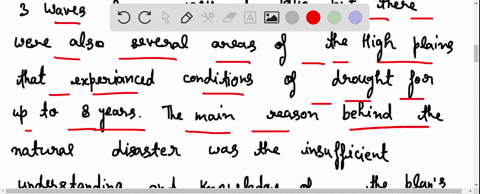 3 waves there
were also several areas of the High plains
that experianced conditions of drought for
up to 8 years. The main reason behind the
natural disaster was the insufficient
understanding and knowledge of the